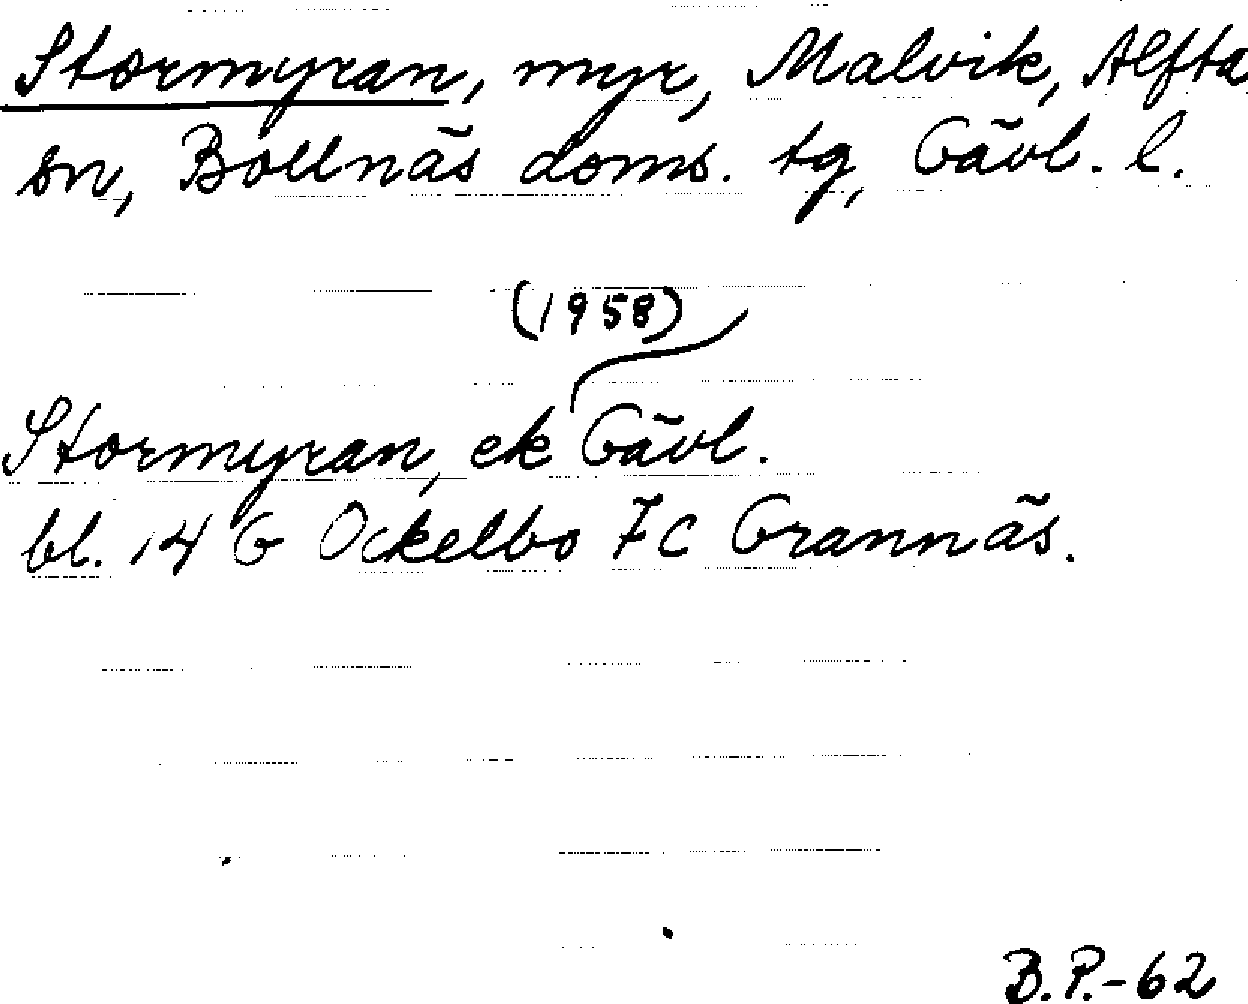 Stormyran, myr, Malvik, Alfta
sn, Bollnäs doms. tg, Gävl. l.
(1958)
Stormyran, ek Gävl.
bl. 14 G Ockelbo 7c Grannäs.
B.P.-62